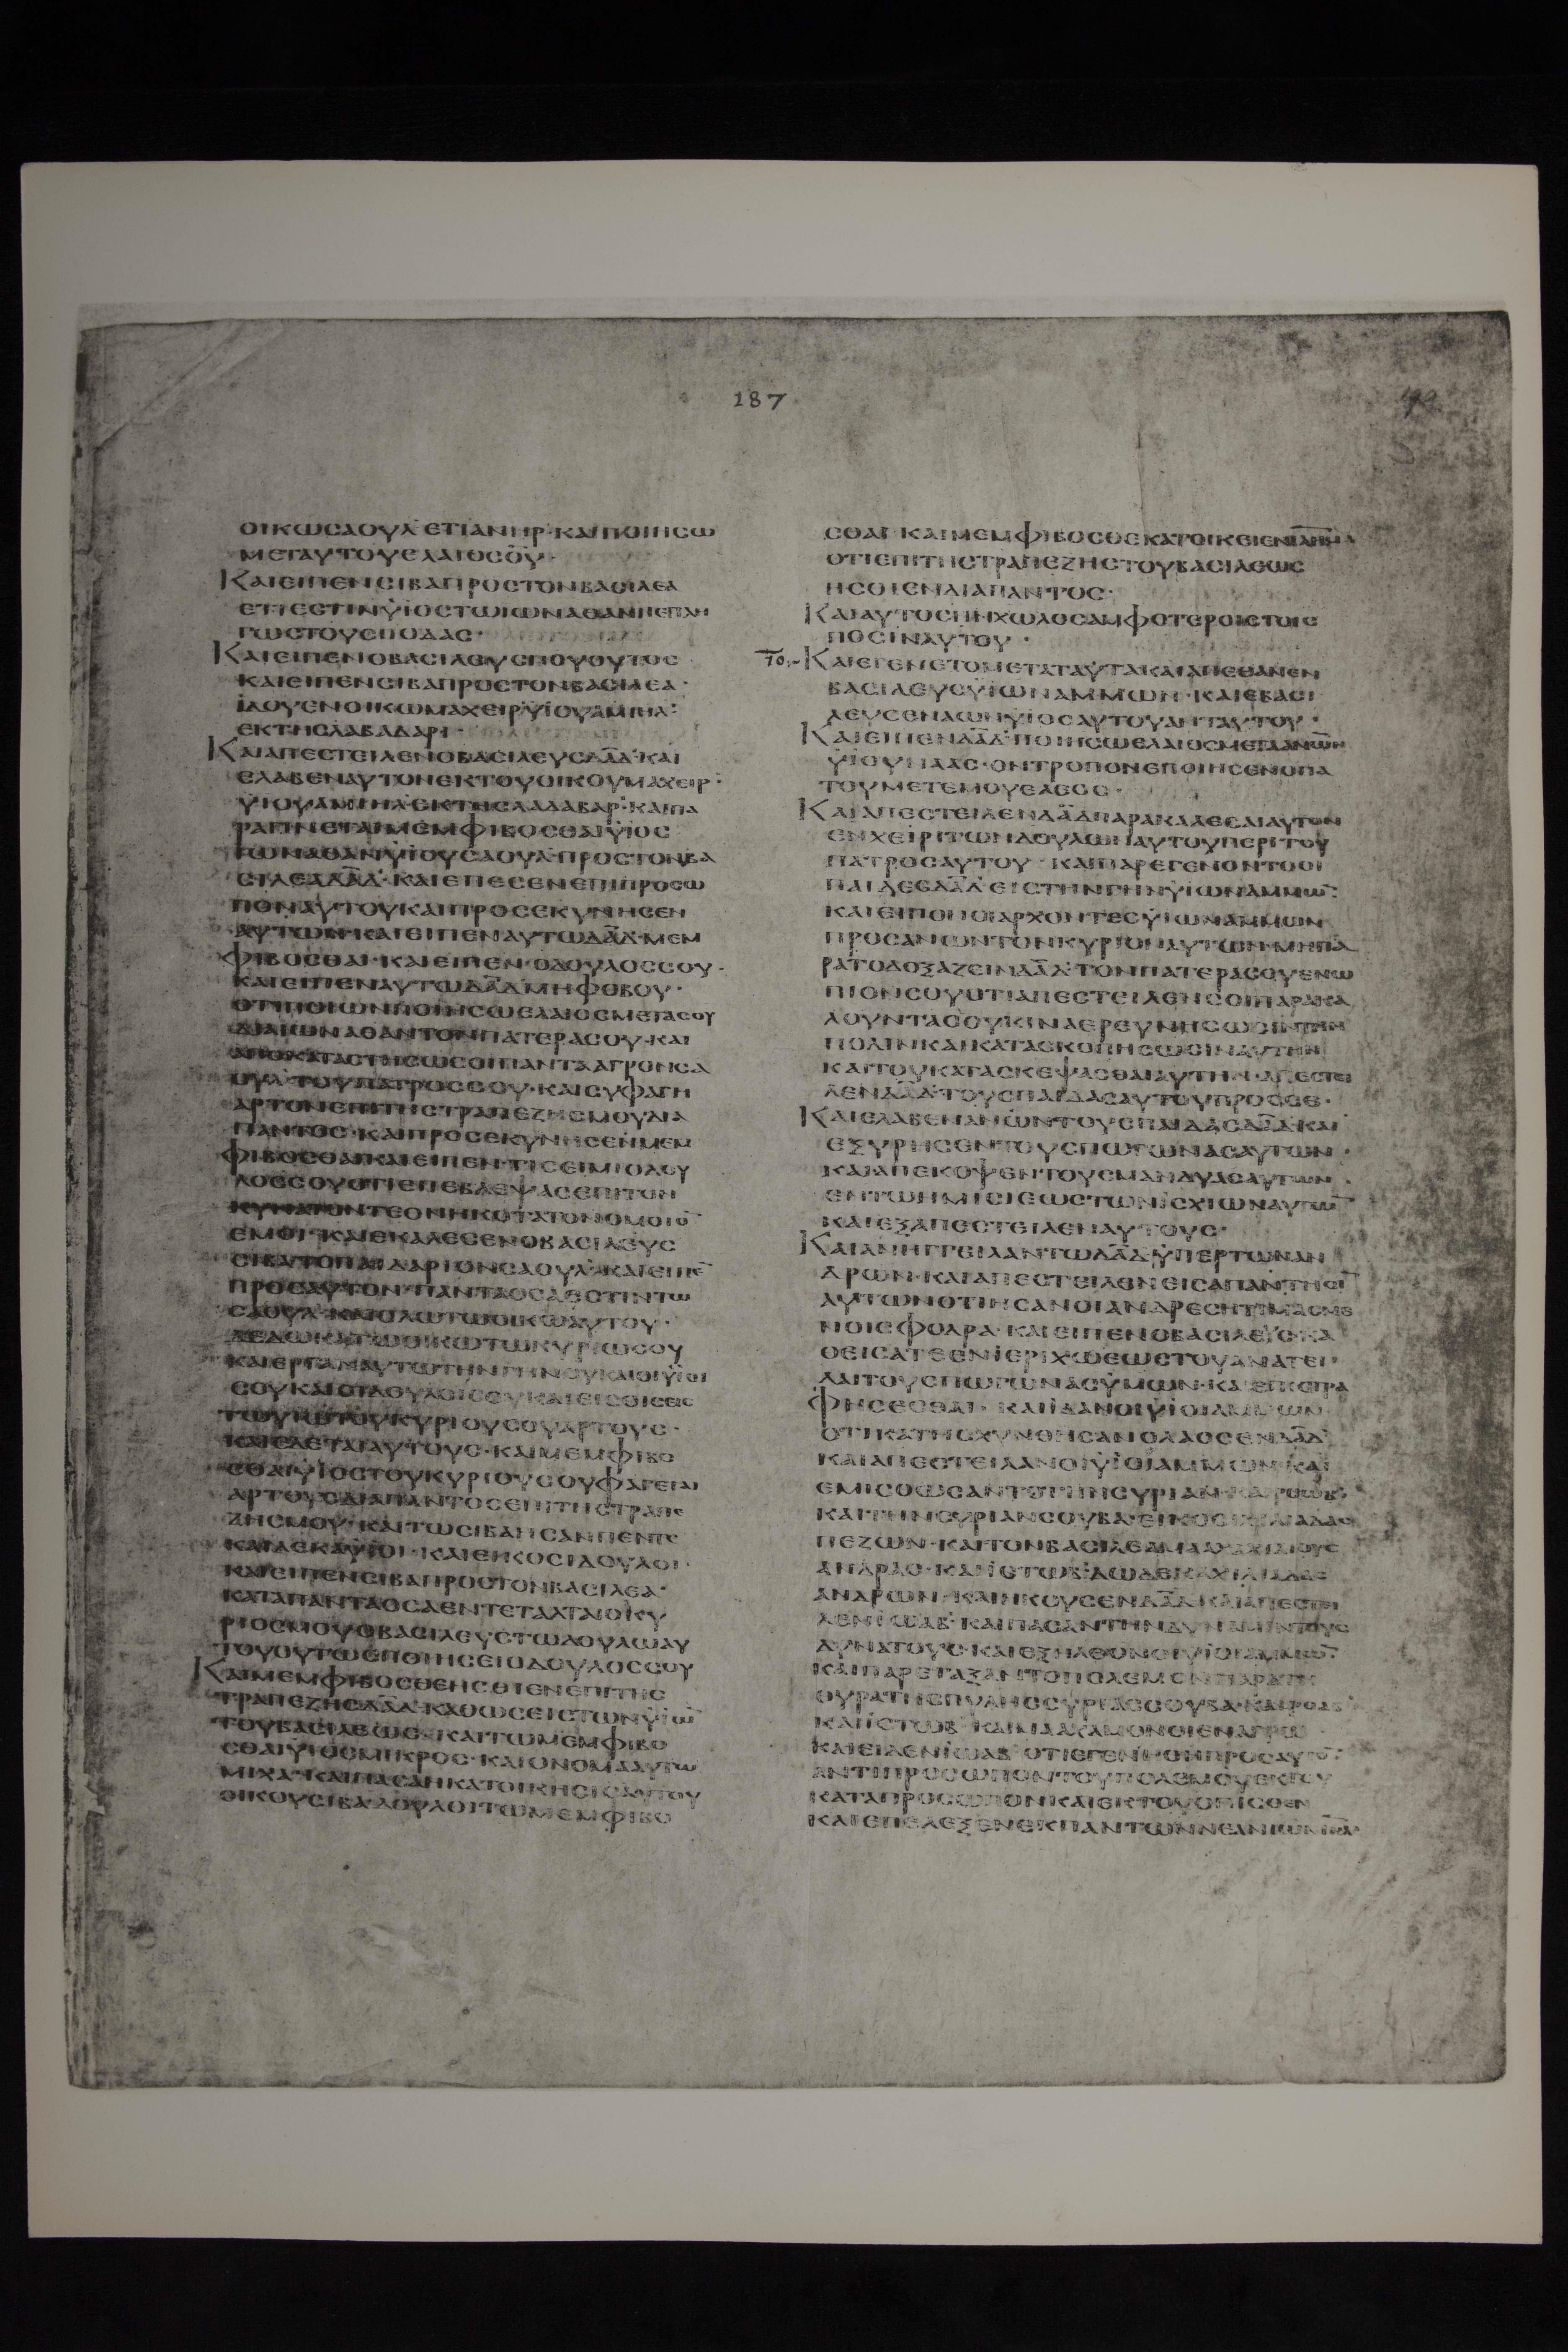 187
ΟΙΚΩСΑΟΥΛ ΕΤΙΑΝΗΡ·ΚΑΙΠΟΙΗСΩ
ΜΕΤΑΥΤΟΥΕΛΑΙΟС
ΚΑΙΕΙΠΕΝСΙΒΑΠΡΟСΤΟΝΒΑСΙΛΕΑ
ΕΤΙΕСΤΙΝΫΙΟСΤΩΙΩΝΑΘΑΝΠΕΠΛΗ
ΓΩСΤΟΥСΠΟΔΑС·
ΚΑΙΕΙΠΕΝΟΒΑСΙΛΕΥСΠΟΥΟΥΤΟС
ΚΑΙΕΙΠΕΝСΙΒΑΠΡΟСΤΟΝΒΑСΙΛΕΑ·
ΪΔΟΥΕΝΟΙΚΩΜΑΧΕΙΡΫΙΟΥΑΜΙΗΛ
ΕΚΤΗСΛΑΒΑΔΑΡ·
ΚΑΙΑΠΕСΤΕΙΛΕΝΟΒΑСΙΛΕΥСΔΑΔ·ΚΑΙ
ΕΛΑΒΕΝΑΥΤΟΝΕΚΤΟΥΟΙΚΟΥΜΑΧΕΙΡ·
ΫΙΟΥΑΜΙΗΛ·ΕΚΤΗСΛΑΔΑΒΑΡ·ΚΑΙΠΑ
ΡΑΓΙΝΕΤΑΙΜΕΜΦΙΒΟСΘΑΙΫΙΟС
ΙΩΝΑΘΑΝΫΙΟΥСΑΟΥΛ·ΠΡΟСΤΟΝΒΑ
СΙΛΕΑΔΑΔ·ΚΑΙΕΠΕСΕΝΕΠΙΠΡΟСΩ
ΠΟΝΑΥΤΟΥΚΑΙΠΡΟСΕΚΥΝΗСΕΝ
ΑΥΤΩ·ΚΑΙΕΙΠΕΝΑΥΤΩΔΑΔ·ΜΕΜ
ΦΙΒΟСΘΑΙ·ΚΑΙΕΙΠΕΝ·ΟΔΟΥΛΟССΟΥ·
ΚΑΙΕΙΠΕΝΑΥΤΩΔΑΔΜΗΦΟΒΟΥ·
ΟΤΙΠΟΙΩΝΠΟΙΗСΩΕΛΑΙΟСΜΕΤΑСΟΥ
ΔΙΑΙΩΝΑΘΑΝΤΟΝΠΑΤΕΡΑСΟΥ·ΚΑΙ
ΑΠΟΚΑΤΑСΤΗСΩСΟΙΠΑΝΤΑΑΓΡΟΝСΑ
ΟΥΛ·ΤΟΥΠΑΤΡΟССΟΥ·ΚΑΙСΥΦΑΓΗ
ΑΡΤΟΝΕΠΙΤΗСΤΡΑΠΕΖΗСΜΟΥΔΙΑ
ΠΑΝΤΟС·ΚΑΙΠΡΟСΕΚΥΝΗСΕΝΜΕΜ
ΦΙΒΟСΘΑΙΚΑΙΕΙΠΕΝ·ΤΙСΕΙΜΙΟΔΟΥ
ΛΟССΟΥΟΤΙΕΠΕΒΛΕΨΑСΕΠΙΤΟΝ
ΚΥΝΑΤΟΝΤΕΘΝΗΚΟΤΑΤΟΝΟΜΟΙΟ̄
ΕΜΟΙ·ΚΑΙΕΚΑΛΕСΕΝΟΒΑСΙΛΕΥС
СΙΒΑΤΟΠΑΙΔΑΡΙΟΝСΑΟΥΛ·ΚΑΙΕΙΠΕ̄
ΠΡΟСΑΥΤΟΝ·ΠΑΝΤΑΟСΑΕСΤΙΝΤΩ
СΑΟΥΛ·ΚΑΙΟΛΩΤΩΟΙΚΩΑΥΤΟΥ·
ΔΕΔΩΚΑΤΩΟΙΚΩΤΩΚΥΡΙΩСΟΥ
ΚΑΙΕΡΓΑΝΑΥΤΩΤΗΝΓΗΝСΥΚΑΙΟΙΫΙΟΙ
СΟΥΚΑΙΟΙΔΟΥΛΟΙСΟΥΚΑΙΕΙСΟΙСΕΙС
ΤΩΥΙΩΤΟΥΚΥΡΙΟΥСΟΥΑΡΤΟΥС·
ΚΑΙΕΔΕΤΑΙΑΥΤΟΥС·ΚΑΙΜΕΜΦΙΒΟ
СΘΑΙΫΙΟСΤΟΥΚΥΡΙΟΥСΟΥΦΑΓΕΙΑΙ
ΑΡΤΟΥСΔΙΑΠΑΝΤΟСΕΠΙΤΗСΤΡΑΠΕ
ΖΗСΜΟΥ·ΚΑΙΤΩСΙΒΑΗСΑΝΠΕΝΤΕ
ΚΑΙΔΕΚΑΫΙΟΙ·ΚΑΙΕΙΚΟСΙΔΟΥΛΟΙ·
ΚΑΙΕΙΠΕΝСΙΒΑΠΡΟСΤΟΝΒΑСΙΛΕΑ·
ΚΑΤΑΠΑΝΤΑΟСΑΕΝΤΕΤΑΛΤΑΙΟΚΥ
ΡΙΟСΜΟΥΟΒΑСΙΛΕΥСΤΩΔΟΥΛΩΑΥ
ΤΟΥΟΥΤΩСΠΟΙΗСΕΙΟΔΟΥΛΟССΟΥ
ΚΑΙΜΕΜΦΙΒΟСΘΕΗСΘΙΕΝΕΠΙΤΗС
ΤΡΑΠΕΖΗСΔΑΔ·ΚΑΘΩСΕΙСΤΩΝΫΙΩ̄
ΤΟΥΒΑСΙΛΕΩС·ΚΑΙΤΩΜΕΜΦΙΒΟ
СΘΑΙΫΙΟСΜΙΚΡΟС·ΚΑΙΟΝΟΜΑΑΥΤΩ
ΜΙΧΑ·ΚΑΙΠΑСΑΗΚΑΤΟΙΚΗСΙСΑΥΤΟΥ
ΟΙΚΟΥСΙΒΑ·ΔΟΥΛΟΙΤΩΜΕΜΦΙΒΟ
СΘΑΙ·ΚΑΙΜΕΜΦΙΒΟСΘΕΚΑΤΟΙΚΕΙΕΝ
ΟΤΙΕΠΙΤΗСΤΡΑΠΕΖΗСΤΟΥΒΑСΙΛΕΩС
ΗСΘΙΕΝΔΙΑΠΑΝΤΟС·
ΚΑΙΑΥΤΟСΗΝΧΩΛΟСΑΜΦΟΤΕΡΟΙСΤΟΙС
ΠΟСΙΝΑΥΤΟΥ·
ΚΑΙΕΓΕΝΕΤΟΜΕΤΑΤΑΥΤΑΚΑΙΑΠΕΘΑΝΕΝ
ΒΑСΙΛΕΥСΫΙΩΝΑΜΜΩΝ·ΚΑΙΕΒΑСΙ
ΛΕΥСΕΝΑΩΝΫΙΟСΑΥΤΟΥΑΝΤΑΥΤΟΥ·
ΚΑΙΕΙΠΕΝΔΑΔ·ΠΟΙΗСΩΕΛΑΙΟСΜΕΤΑΑΝΩΝ
ΫΙΟΥΝΑΑС·ΟΝΤΡΟΠΟΝΕΠΟΙΗСΕΝΟΠΑ
ΤΟΥΜΕΤΕΜΟΥΕΛΕΟС·
ΚΑΙΑΠΕСΤΕΙΛΕΝΔΑΔΠΑΡΑΚΑΛΕСΑΙΑΥΤΟΝ
ΕΝΧΕΙΡΙΤΩΝΔΟΥΛΩΝΑΥΤΟΥΠΕΡΙΤΟΥ
ΠΑΤΡΟСΑΥΤΟΥ·ΚΑΙΠΑΡΕΓΕΝΟΝΤΟΟΙ
ΠΑΙΔΕСΔΑΔΕΙСΤΗΝΓΗΝΫΙΩΝΑΜΜΩ̄:
ΚΑΙΕΙΠΟΝΟΙΑΡΧΟΝΤΕСΫΙΩΝΑΜΜΩΝ
ΠΡΟСΑΝΩΝΤΟΝΚΥΡΙΟΝΑΥΤΩΝ·ΜΗΠΑ
ΡΑΤΟΔΟΞΑΖΕΙΝΔΑΔ·ΤΟΝΠΑΤΕΡΑСΟΥΕΝΩ
ΠΙΟΝСΟΥΟΤΙΑΠΕСΤΕΙΛΕΝСΟΙΠΑΡΑΚΑ
ΛΟΥΝΤΑСΟΥΚΙΝΑΕΡΕΥΝΗСΩСΙΝΤΗΝ
ΠΟΛΙΝΚΑΙΚΑΤΑСΚΟΠΗСΩСΙΝΑΥΤΗΝ
ΚΑΙΤΟΥΚΑΤΑСΚΕΨΑСΘΑΙΑΥΤΗΝ·ΑΠΕСΤΕΙ
ΛΕΝΔΑΔ·ΤΟΥСΠΑΙΔΑСΑΥΤΟΥΠΡΟССΕ·
ΚΑΙΕΛΑΒΕΝΑΝΩΝΤΟΥСΠΑΙΔΑСΔΑΔ·ΚΑΙ
ΕΞΥΡΗСΕΝΤΟΥСΠΩΓΩΝΑСΑΥΤΩΝ·
ΚΑΙΑΠΕΚΟΨΕΝΤΟΥСΜΑΝΔΥΑСΑΥΤΩΝ·
ΕΝΤΩΗΜΙСΙΕΩСΤΩΝΙСΧΙΩΝΑΥΤΩ̄
ΚΑΙΕΞΑΠΕСΤΕΙΛΕΝΑΥΤΟΥС·
ΚΑΙΑΝΗΓΓΕΙΛΑΝΤΩΔΑΔ·ΫΠΕΡΤΩΝΑΝ
ΔΡΩΝ·ΚΑΙΑΠΕСΤΕΙΛΕΝΕΙСΑΠΑΝΤΗСῙ
ΑΥΤΩΝΟΤΙΗСΑΝΟΙΑΝΔΡΕСΗΤΙΜΑСΜΕ
ΝΟΙСΦΟΔΡΑ·ΚΑΙΕΙΠΕΝΟΒΑСΙΛΕΥС·ΚΑ
ΘΕΙСΑΤΕΕΝΪΕΡΙΧΩΕΩСΤΟΥΑΝΑΤΕΙ·
ΛΑΙΤΟΥСΠΩΓΩΝΑСΫΜΩΝ·ΚΑΙΕΠΙСΤΡΑ
ΦΗСΕСΘΑΙ·ΚΑΙΪΔΑΝΟΙΫΙΟΙΑΜΜΩΝ·
ΟΤΙΚΑΤΗСΧΥΝΘΗСΑΝΟΛΑΟСΕΝΔΑΔ·
ΚΑΙΑΠΕСΤΕΙΛΑΝΟΙΫΙΟΙΑΜΜΩΝ·ΚΑΙ
ΕΜΙСΘΩСΑΝΤΟΤΗΝСΥΡΙΑΝ
ΚΑΙΤΗΝСΥΡΙΑΝСΟΥΒΑ·ΕΙΚΟСΙΧΙΛΙΑΔΑС
ΠΕΖΩΝ·ΚΑΙΤΟΝΒΑСΙΛΕΑ
ΑΝΔΡΑС·ΚΑΙΪСΤΩΒ·ΔΩΔΕΚΑΧΙΛΙΑΔΑС
ΑΝΔΡΩΝ·ΚΑΙΗΚΟΥСΕΝΔΑΔ·ΚΑΙΑΠΕСΤΕΙ
ΛΕΝΪΩΑΒ·ΚΑΙΠΑСΑΝΤΗΝΔΥΝΑΜΙΝΤΟΥС
ΔΥΝΑΤΟΥС·ΚΑΙΕΞΗΛΘΟΝΟΙΫΙΟΙΑΜΜΩ̄:
ΚΑΙΠΑΡΕΤΑΞΑΝΤΟΠΟΛΕΜΟΝΠΑΡΑΤΗ
ΘΥΡΑΤΗСΠΥΛΗССΥΡΙΑССΟΥΒΑ·ΚΑΙΡΟΩΒ
ΚΑΙΪСΤΩΒ·ΚΑΙΜΑΑΧΑΜΟΝΟΙΕΝΑΓΡΩ·
ΚΑΙΕΙΔΕΝΪΩΑΒ·ΟΤΙΕΓΕΝΗΘΗΠΡΟСΑΥΤΟ̄:
ΑΝΤΙΠΡΟСΩΠΟΝΤΟΥΠΟΛΕΜΟΥΕΚΤΟΥ
ΚΑΤΑΠΡΟСΩΠΟΝΚΑΙΕΚΤΟΥΟΠΙСΘΕΝ
ΚΑΙΕΠΕΛΕΞΕΝΕΚΠΑΝΤΩΝΝΕΑΝΙΩΝ